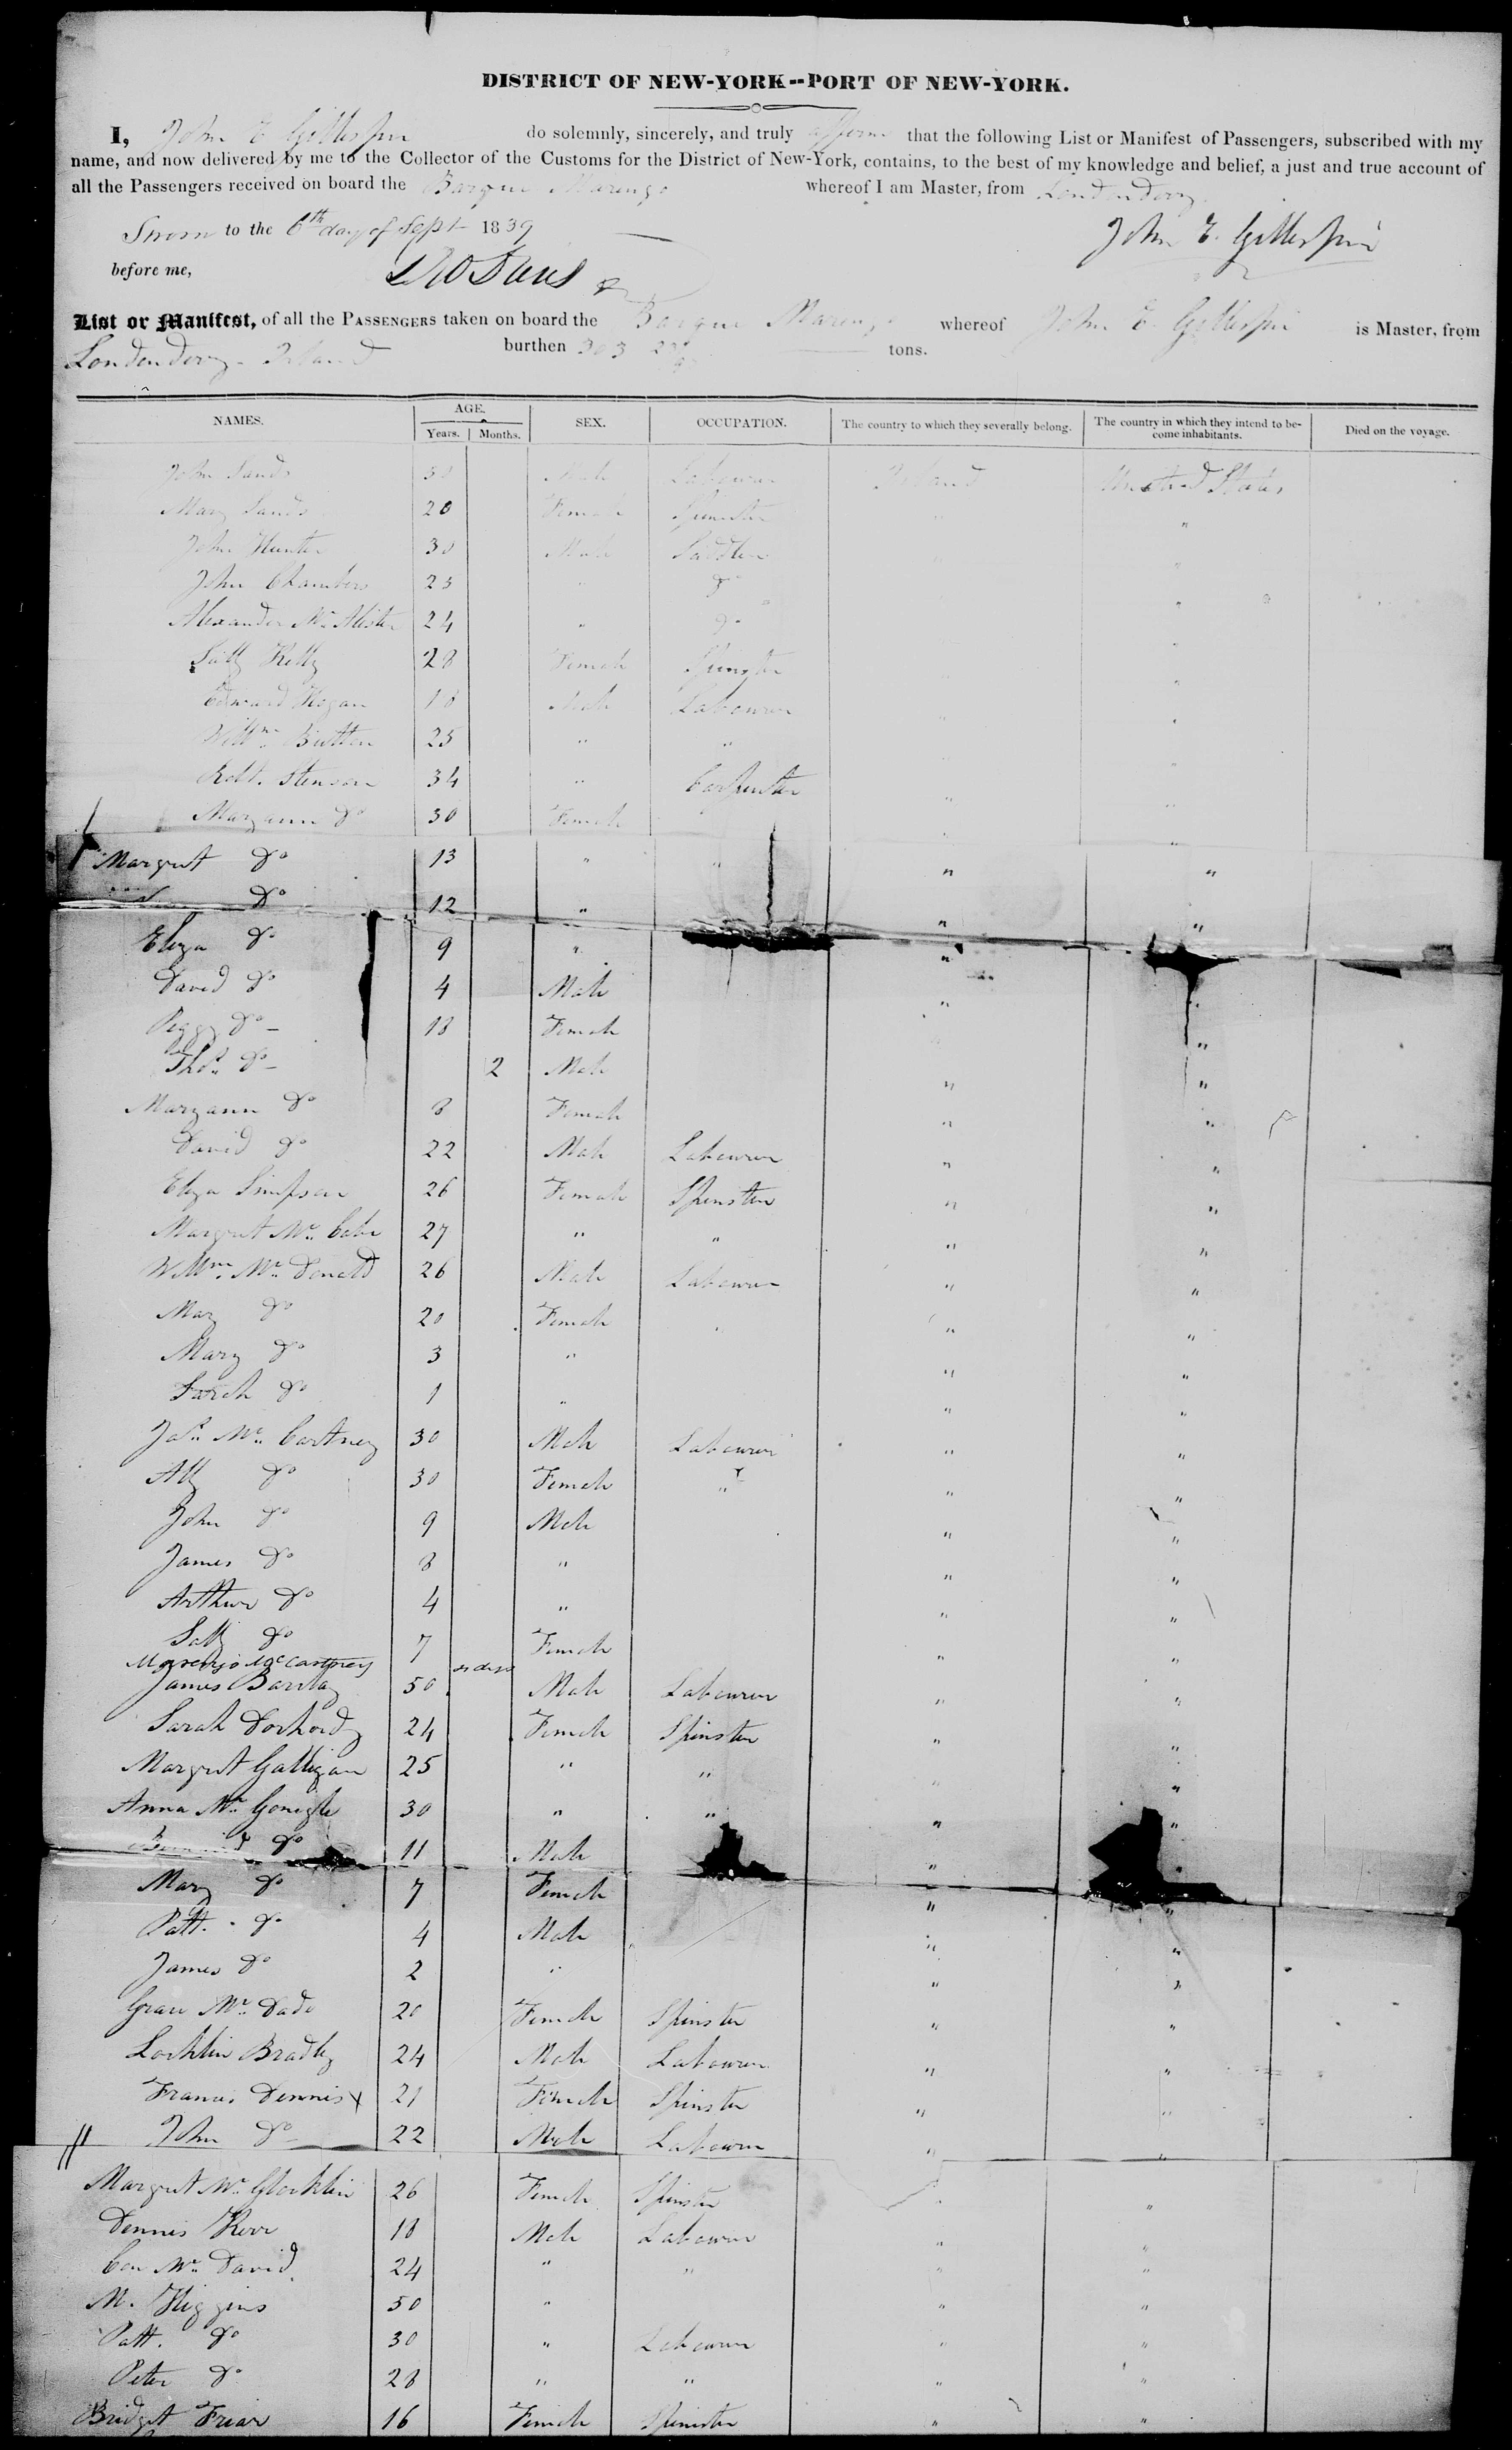 DISTRICT OF NEW-YORK--PORT OF NEW-YORK.
I, John E Gillespie do solemnly, sincerely, and truly affirm that the following List or Manifest of Passengers, subscribed with my
name, and now delivered by me to the Collector of the Customs for the District of New-York, contains, to the best of my knowledge and belief, a just and true account of
all the Passengers received on board the Barque Marengo whereof I am Master, from Londonderry
Sworn to the 6th day of Sept 1839
John E. Gillespie
before me,
List or Manifest, of all the PASSENGERS taken on board the Barque Marengo whereof John E. Gillespie is Master, from
Londonderry - Ireland burthen 303 tons.
NAMES. AGE. Years. Months. SEX. OCCUPATION. The country to which they severally belong. The country in which they intend to become inhabitants. Died on the voyage.
John Sands 30 Male Labourer Ireland United States
Mary Sands 20 Female Spinster "
John Hunter 30 Male Saddler "
John Chambers 23 " do "
Alexander Mc Alister 24 " do "
Sally Kelly 28 Female Spinster "
Edward Hogan 18 Male Labourer "
Willm. Britton 25 " " "
Robt. Stenson 34 " Carpenter " "
Maryann Do 30 Female " "
Margret Do 13 " " " "
Do 12 " " "
Eliza Do 9 " "
David Do 4 Male " "
Peggy Do 18 Female "
Thos. Do 2 Male " "
Maryann Do 8 Female " "
David Do 22 Male Labourer " "
Eliza Simpson 26 Female Spinster " "
Margret Mc Cabe 27 " " " "
Willm. Mc Donald 26 Male Labourer " "
Mary Do 20 Female " "
Mary Do 3 " " "
Sarah Do 1 " " "
Jas. Mc Cartney 30 Male Labourer " "
Ally Do 30 Female " " "
John Do 9 Male " "
James Do 8 " " "
Arthur Do 4 " " "
Sally Do 7 Female " "
Marengo McCartney
James Barclay 50 Male Labourer " "
Sarah Dorhordy 24 Female Spinster " "
Margret Galligan 25 " " " "
Anna Mc Gonigle 30 " " " "
Do 11 Male "
Mary Do 7 Female " "
Patt. Do 4 Male " "
James Do 2 " " "
Grace Mc Dade 20 Female Spinster " "
Lochlin Bradley 24 Male Labourer " "
Frances Dennis x 21 Female Spinster " "
John Do 22 Male Labourer " "
Margret Mc Glochlin 26 Female Spinster "
Dennis Kerr 18 Male Labourer " "
Con Mc David 24 " " " "
M. Higgins 50 " " "
Patt. Do 30 " Labourer " "
Peter Do 28 " " " "
Bridget Friar 16 Female Spinster " "